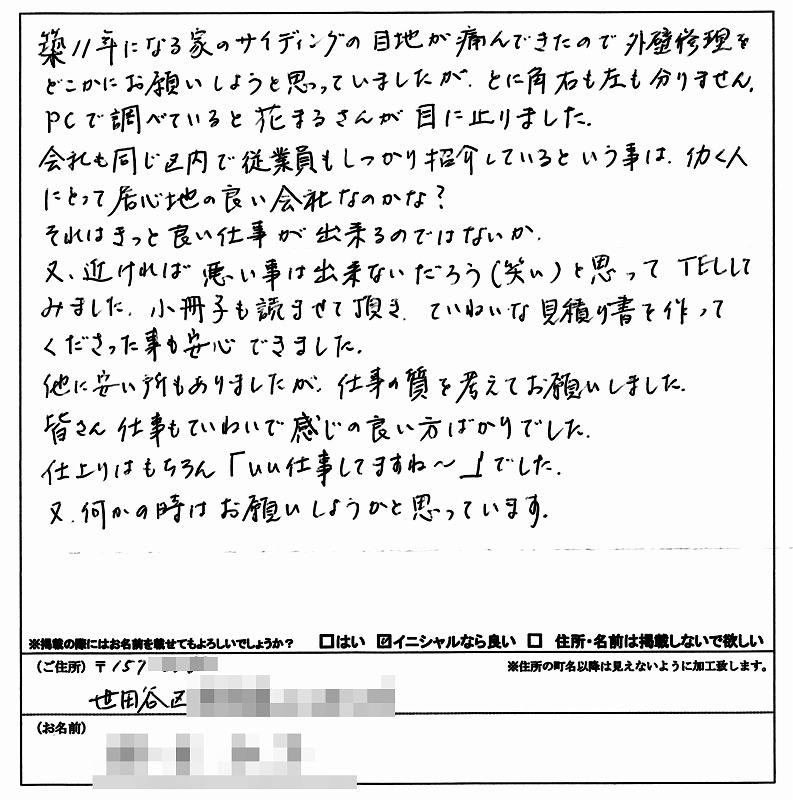 築11年になる家のサイディングの目地が痛んできたので外壁修理を
どこかにお願いしようと思っていましたが、とに角右も左も分りません。
PCで調べていると花まるさんが目に止りました。
会社も同じ区内で従業員もしっかり紹介しているという事は、仂く人
にとって居心地の良い会社なのかな?
それはきっと良い仕事が出来るのではないか、
又、近ければ悪い事は出来ないだろう(笑い)と思ってTELして
みました。小冊子も読ませて頂き、ていねいな見積り書を作って
くださった事も安心できました。
他に安い所もありましたが、仕事の質を考えてお願いしました。
皆さん仕事もていねいで感じの良い方ばかりでした。
仕上りはもちろん「いい仕事してますね〜」でした。
又、何かの時はお願いしようかと思っています。
※掲載の際にはお名前を載せてもよろしいでしょうか? □はい ☑イニシャルなら良い □ 住所・名前は掲載しないで欲しい
(ご住所)〒157 ※住所の町名以降は見えないように加工致します。
世田谷区
(お名前)